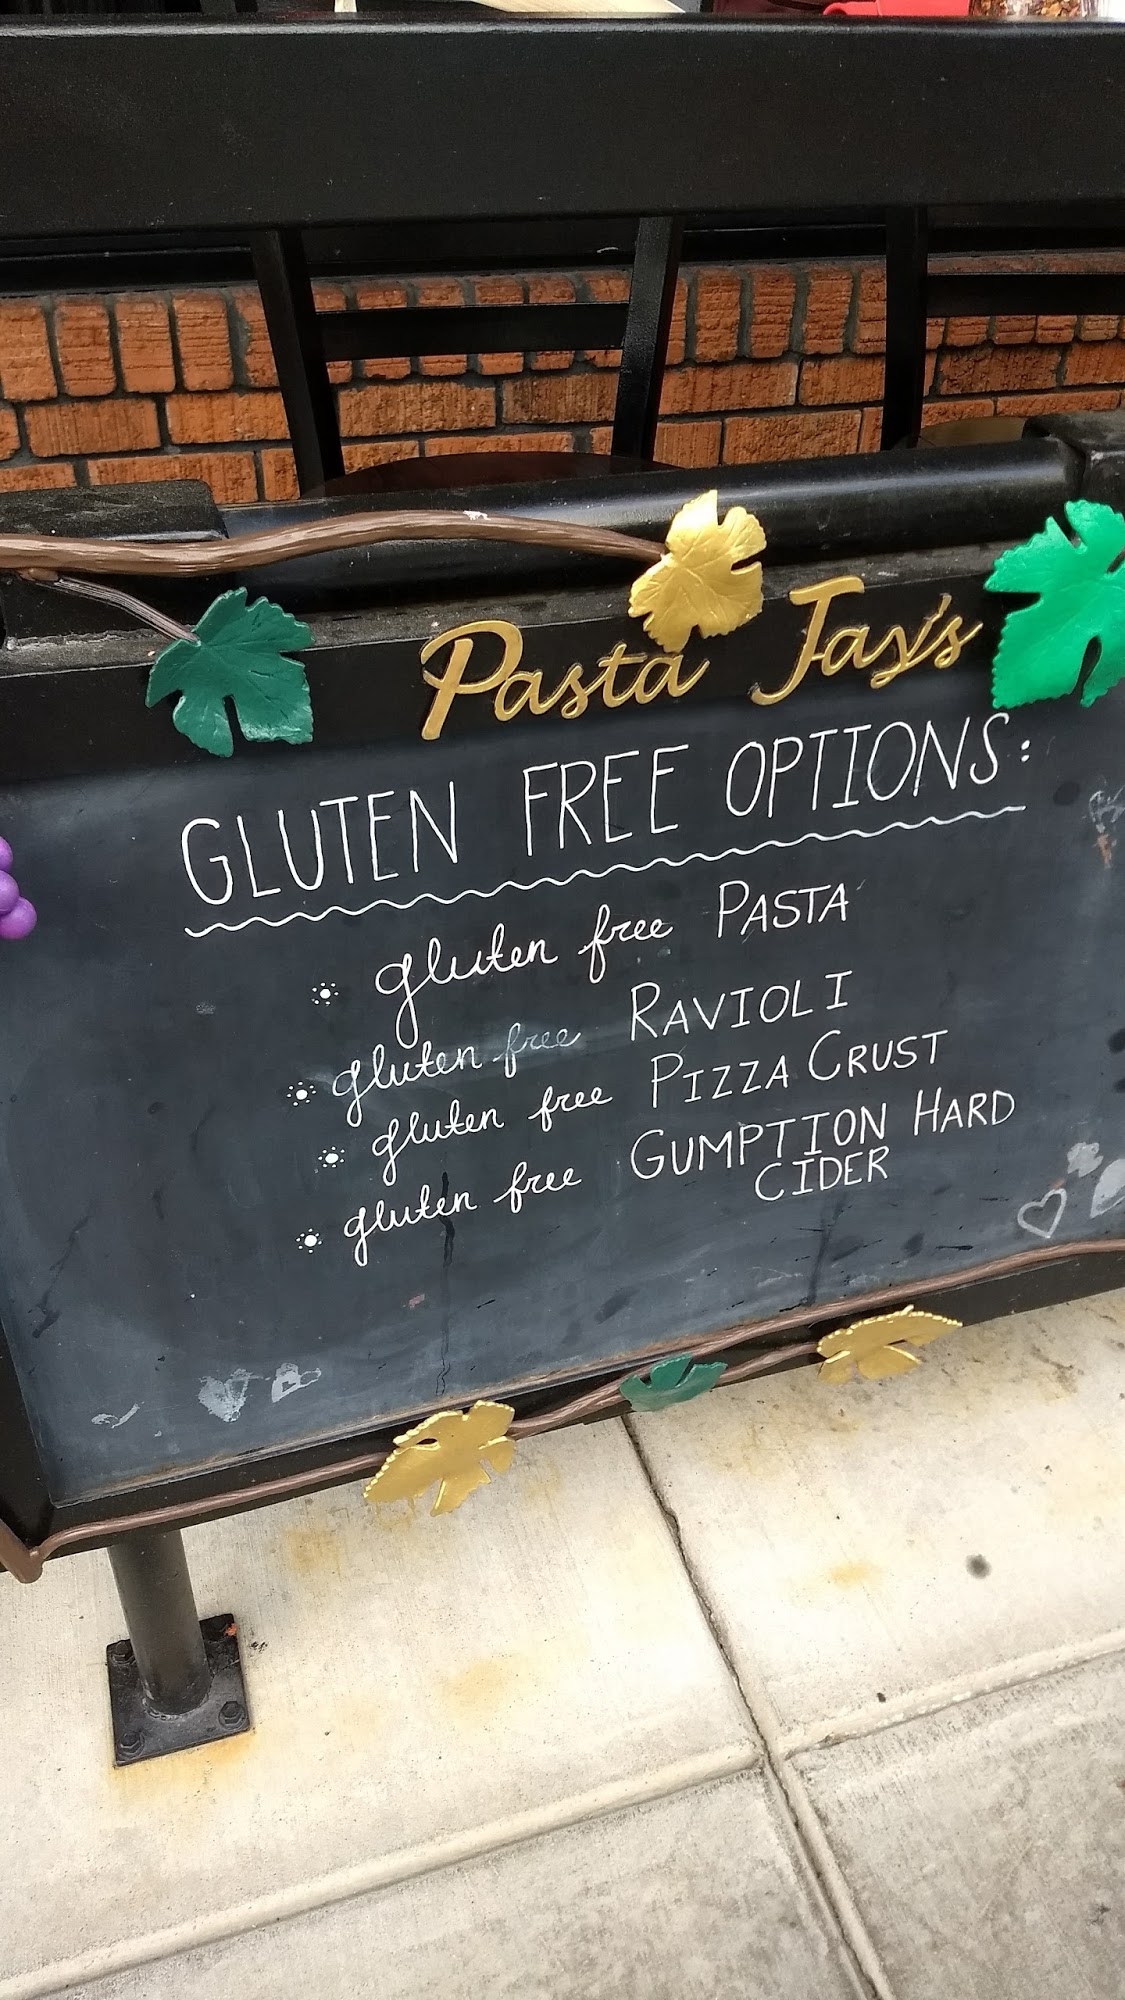 Pasta Jay's
GLUTEN FREE OPTIONS:
gluten free PASTA
gluten free RAVIOLI
gluten free PIZZA CRUST
gluten free GUMPTION HARD
CIDER